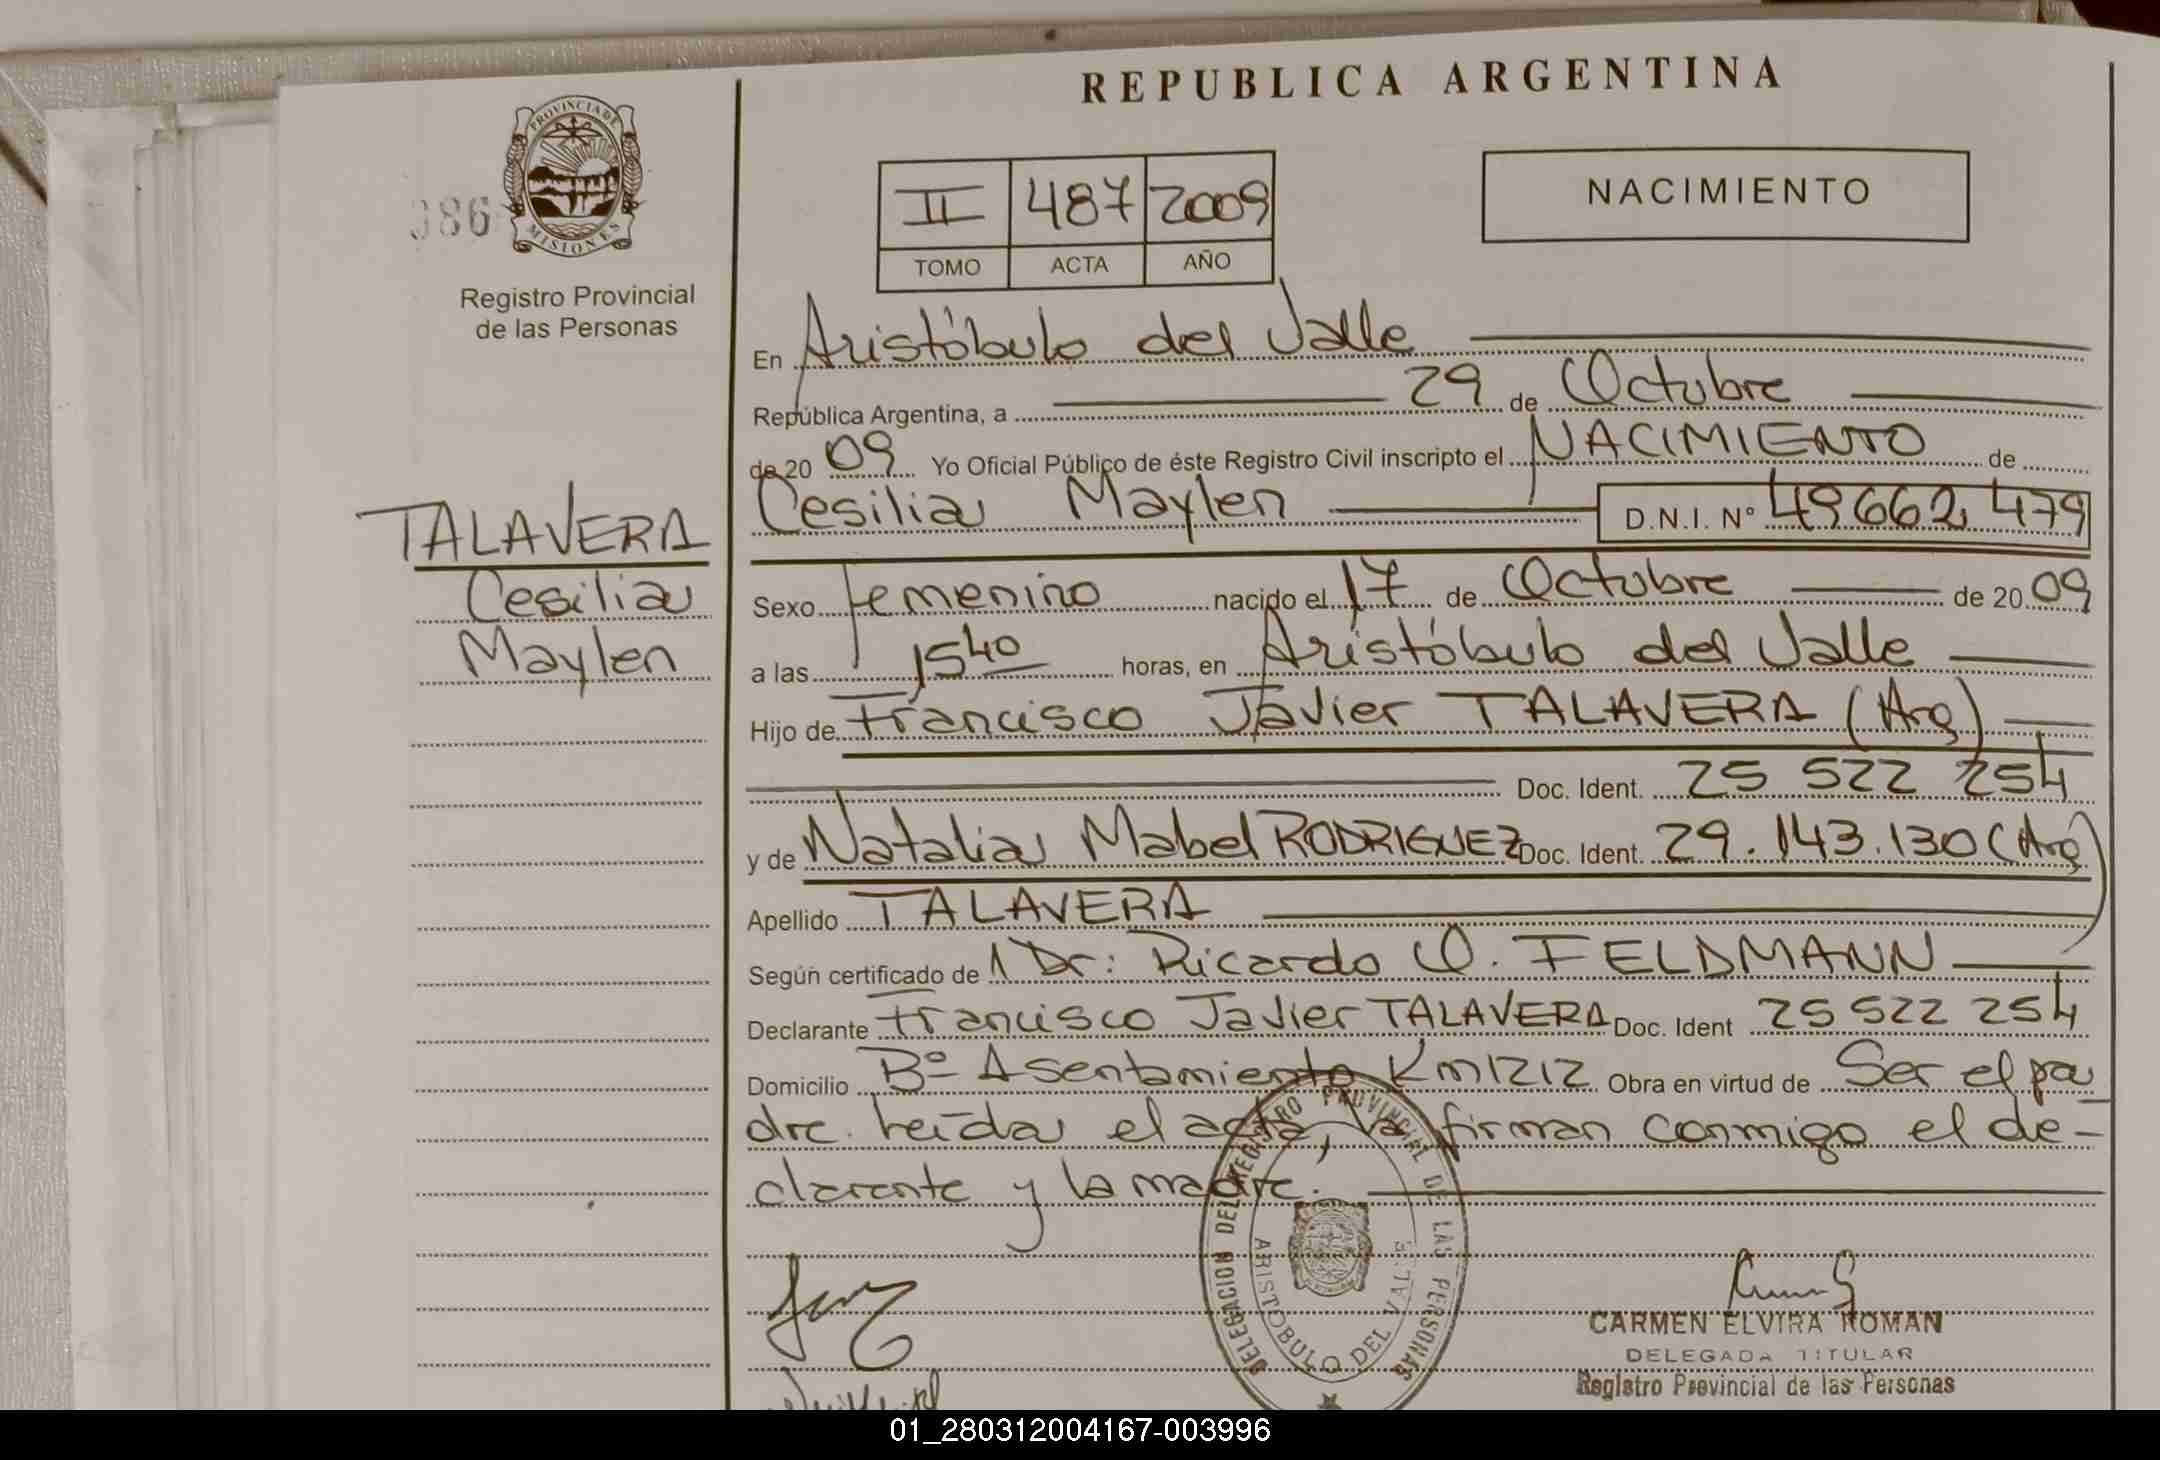 REPUBLICA ARGENTINA
PROVINCIA DE
MISIONES
386
Registro Provincial
de las Personas
II 487 2009
TOMO ACTA AÑO
NACIMIENTO
TALAVERA
Cesilia
Maylen
En Aristóbulo del Valle
República Argentina, a 29 de Octubre
de 20 09 Yo Oficial Público de éste Registro Civil inscripto el NACIMIENTO de
Cesilia Maylen D.N.I. N° 49662.479
Sexo femenino nacido el 17 de Octubre de 20 09
a las 15 40 horas, en Aristóbulo del Valle
Hijo de Francisco Javier TALAVERA (Arg)
Doc. Ident. 25 522 254
y de Natalia Mabel RODRIGUEZ Doc. Ident. 29.143.130 (Arg)
Apellido TALAVERA
Según certificado de Dr: Ricardo O. FELDMANN
Declarante Francisco Javier TALAVERA Doc. Ident 25 522 254
Domicilio Bº Asentamiento Km 1212 Obra en virtud de Ser el pa
dre. Leída el acta, la firman conmigo el de-
clarante y la madre.
DELEGACION DEL REGISTRO PROVINCIAL DE LAS PERSONAS
ARISTOBULO DEL VALLE
CARMEN ELVIRA ROMAN
DELEGADA TITULAR
Registro Provincial de las Personas
01_280312004167-003996